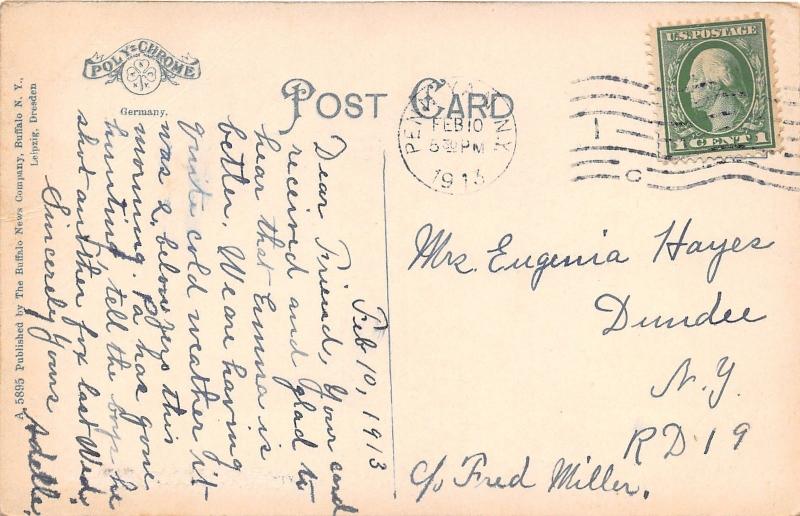 POLY-CHROME
Germany.
A 5895 Published by The Buffalo News Company, Buffalo N. Y.,
Leipzig, Dresden
POST CARD
PENN YAN
FEB 10
5 PM
1913
N.Y.
U.S. POSTAGE
1 CENT 1
Feb 10, 1913
Dear Friend, Your card
received and glad to
hear that Emma is
better. We are having
quite cold weather it
was 2 below zero this
morning. Pa has gone
hunting tell the boys he
shot another fox last Wed.
Sincerely Yours
Adella.
Mrs. Eugenia Hayes
Dundee
N.Y.
RD 19
c/o Fred Miller.